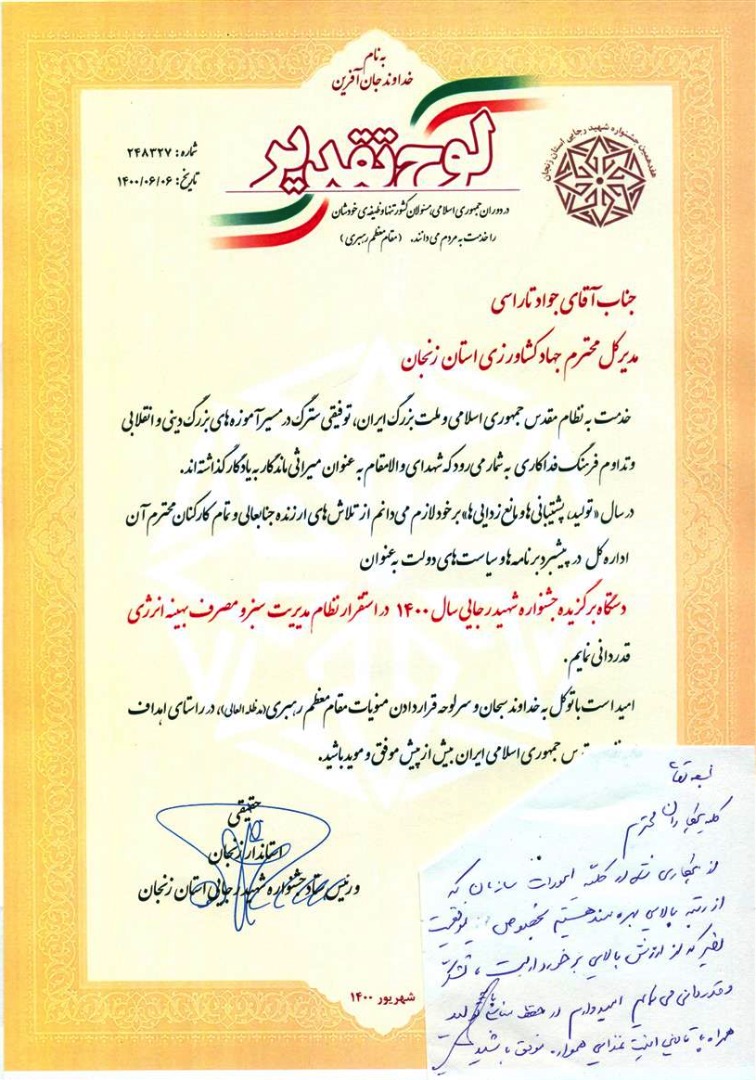 به نام
خداوند جان آفرین
هفدهمین جشنواره شهید رجایی استان زنجان
لوح تقدیر
شماره: ۲۴۸۳۲۷
تاریخ: ۱۴۰۰/۰۶/۰۶
در دوران جمهوری اسلامی، مسئولان کشور تنها وظیفه‌ی خودشان
را خدمت به مردم می دانند. (مقام معظم رهبری)
جناب آقای جواد تاراسی
مدیرکل محترم جهاد کشاورزی استان زنجان
خدمت به نظام مقدس جمهوری اسلامی و ملت بزرگ ایران، توفیقی سترگ در مسیر آموزه های بزرگ دینی و انقلابی
و تداوم فرهنگ فداکاری به شمار می رود که شهدای والامقام به عنوان میراثی ماندگار به یادگار گذاشته اند.
در سال «تولید، پشتیبانی ها و مانع زدایی ها» بر خود لازم می دانم از تلاش های ارزنده جنابعالی و تمام کارکنان محترم آن
اداره کل در پیشبرد برنامه ها و سیاست های دولت به عنوان
دستگاه برگزیده جشنواره شهید رجایی سال ۱۴۰۰ در استقرار نظام مدیریت سبز و مصرف بهینه انرژی
قدردانی نمایم.
امید است با توکل به خداوند سبحان و سرلوحه قرار دادن منویات مقام معظم رهبری (مدظله العالی)، در راستای اهداف
جمهوری اسلامی ایران بیش از پیش موفق و موید باشید.
حقیقی
استاندار زنجان
و رئیس ستاد جشنواره شهید رجایی استان زنجان
شهریور ۱۴۰۰
کلیه همکاران محترم
از همکاری در کلیه امورات سازمان که
از رتبه بالایی بهره مند هستیم بخصوص موفقیت
اخیر که از ارزش بالایی برخوردار است، تشکر
و قدردانی می نمایم امیدوارم در حفظ
همراه با تامین امنیت غذایی همواره موفق باشید